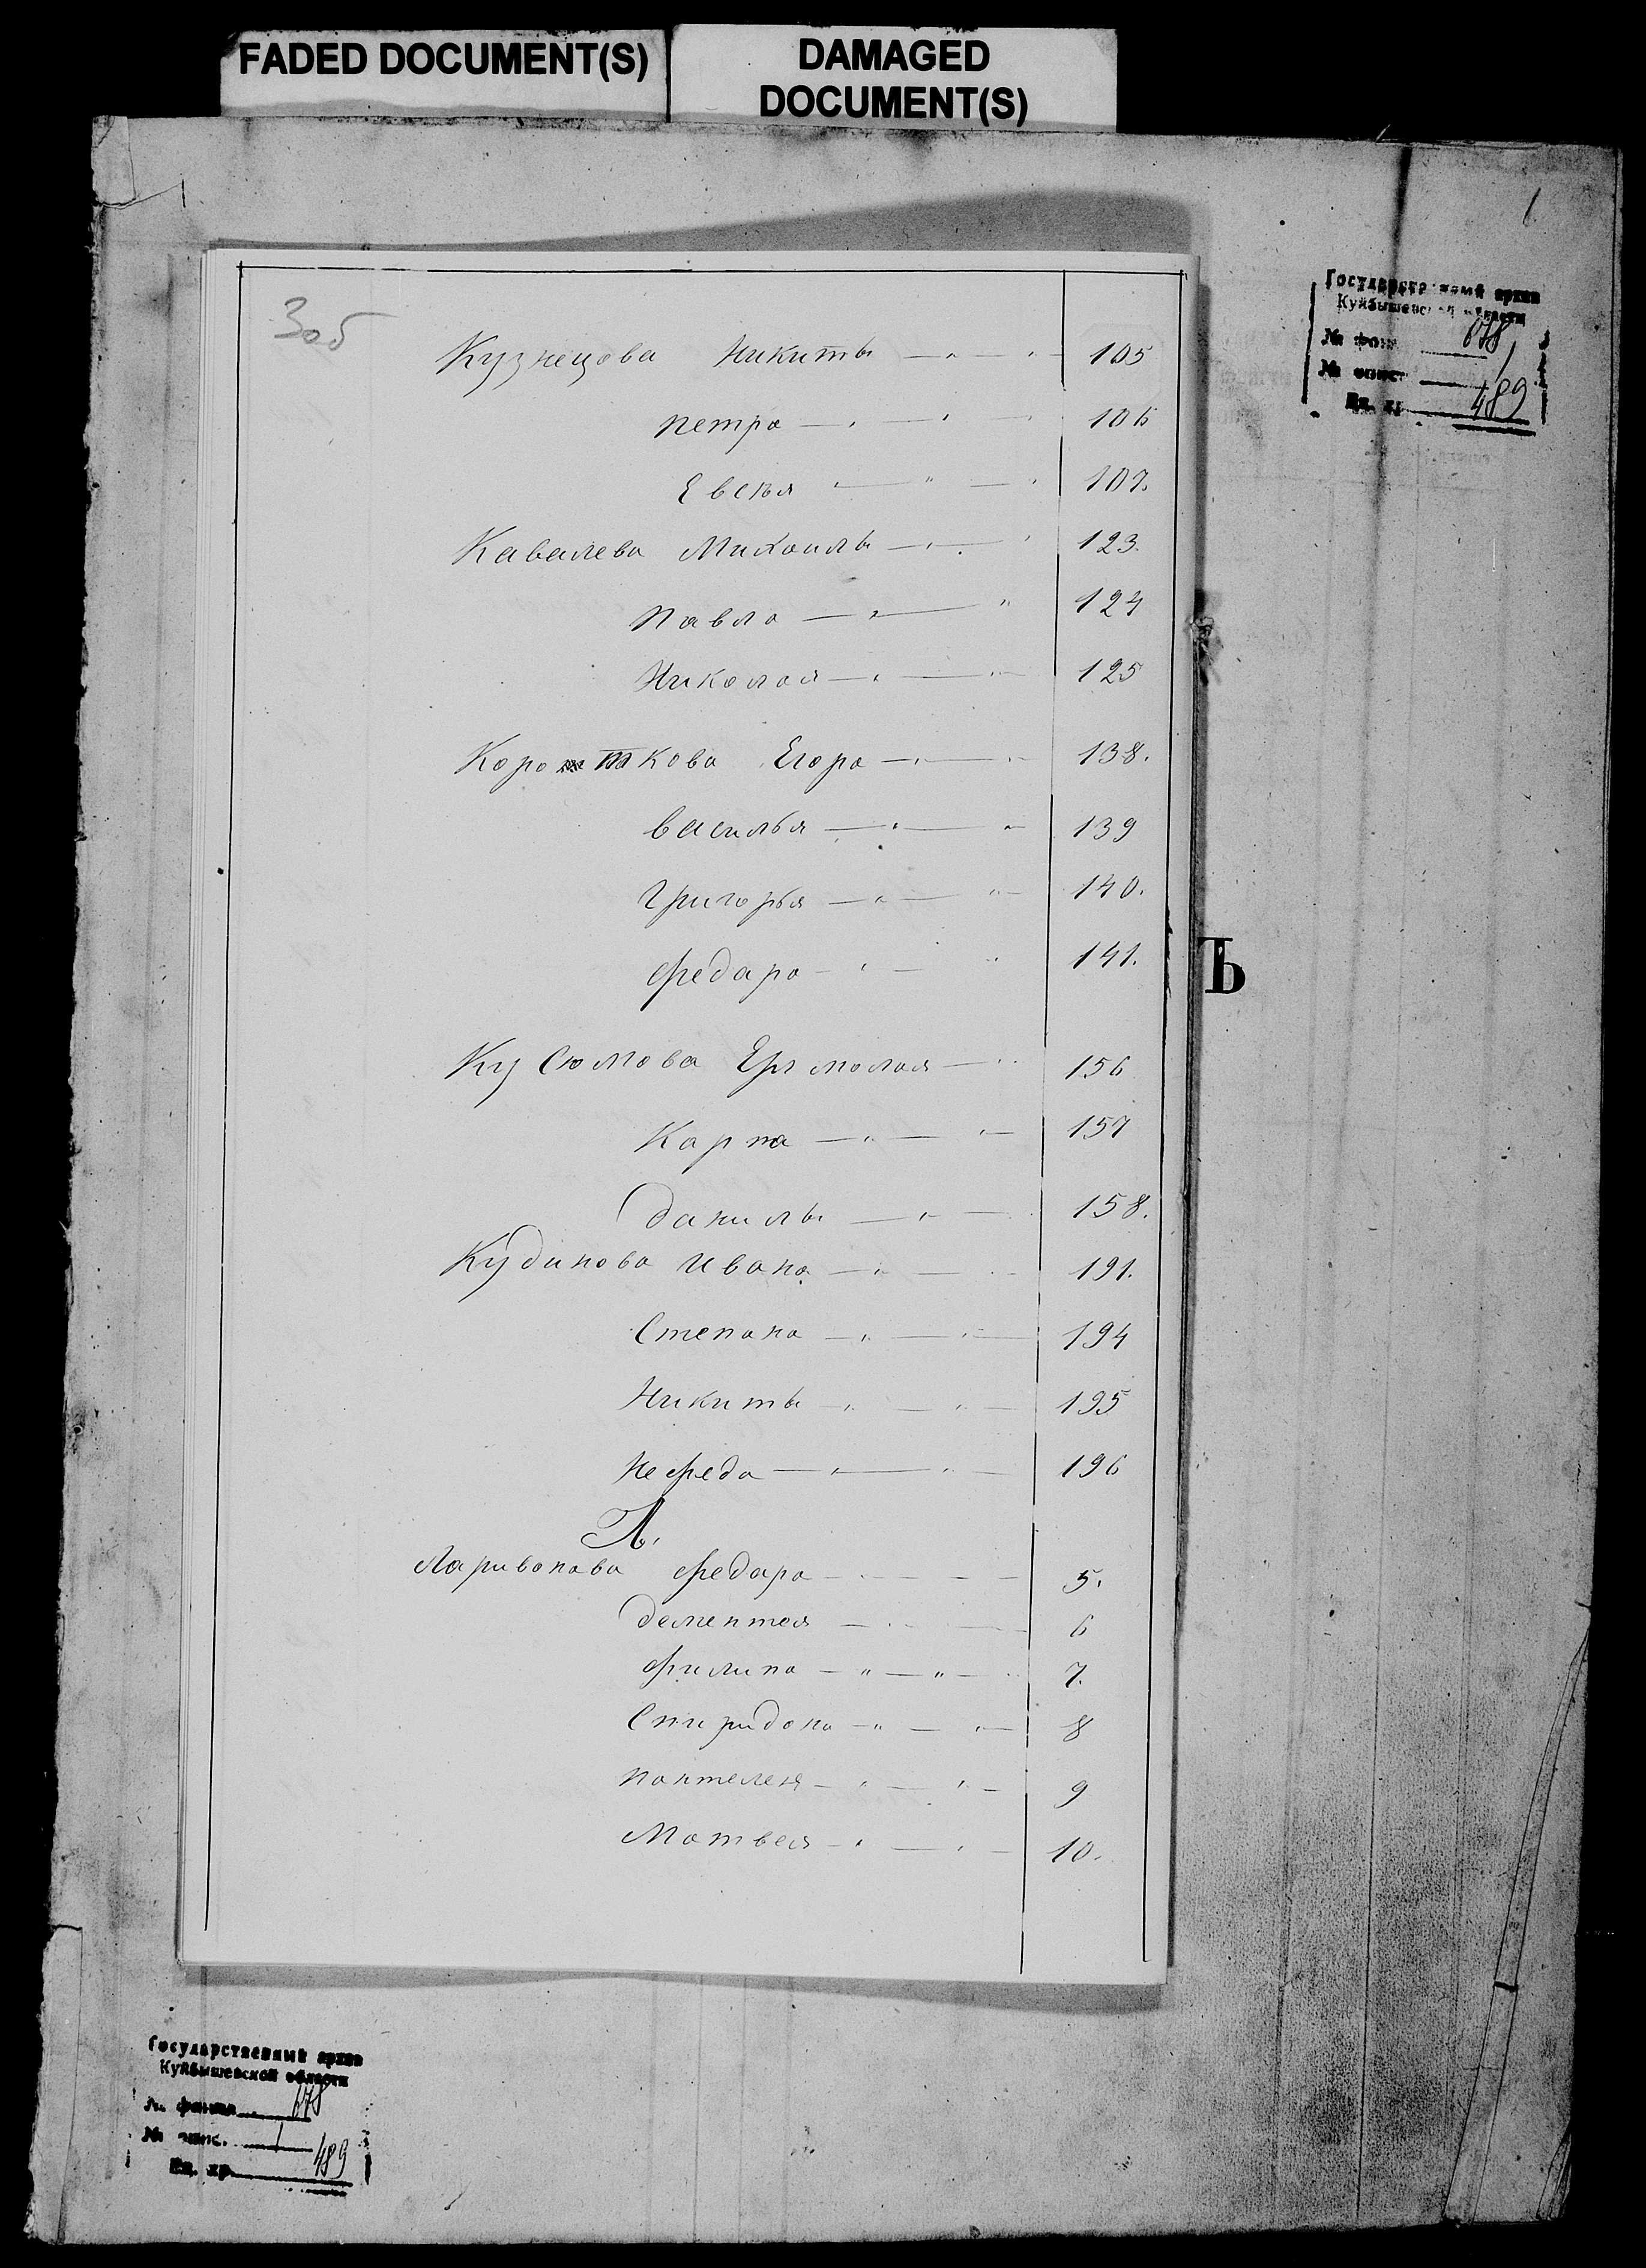 FADED DOCUMENT(S)
DAMAGED
DOCUMENT(S)
1
Государственный архив
Куйбышевской области
№ фонда 678
№ опис. 1
Ед. хр. 489
Зоб
Кузнецова Никиты 105
петра 106
Евсѣя 107.
Кавалева Михаилы 123.
павла 124
Николая 125
Короткова Егора 138.
василья 139
григорья 140.
федара 141.
Ъ
Кусюмова Ермолая 156
Карпа 157
данилы 158.
Кудинова ивана 191.
Степана 194
Никиты 195
Нефеда 196
Л.
Ларивонова федара 5.
дементея 6
филипа 7.
Спиридона 8
пантелея 9
Матвея 10.
Государственный архив
Куйбышевской области
№ фонда 678
№ опис. 1
Ед. хр. 489